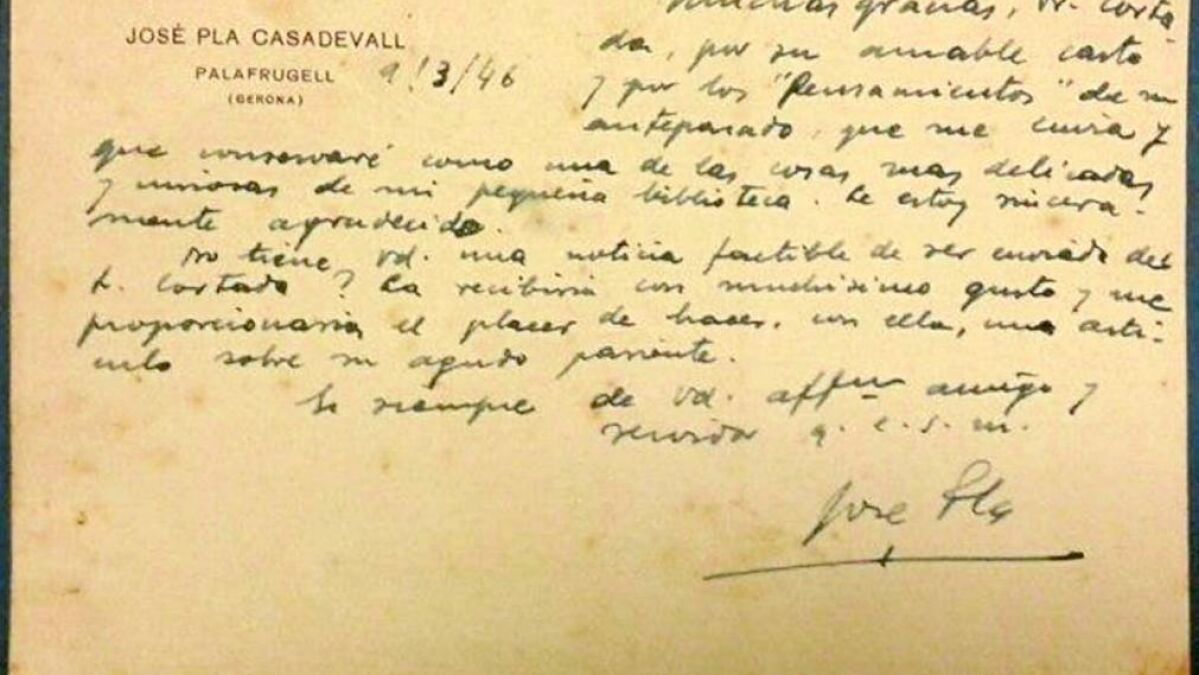 JOSÉ PLA CASADEVALL
PALAFRUGELL
(GERONA)
9/3/46
Muchas gracias, Sr. Corta
da, por su amable carta
y por los "Pensamientos" de su
antepasado, que me envia y
que conservaré como una de las cosas mas delicadas
y curiosas de mi pequeña biblioteca. Le estoy sincera-
mente agradecido.
No tiene Vd. una noticia factible de ser enviada del
Sr. Cortada? La recibiria con muchisimo gusto y me
proporcionaria el placer de hacer, con ella, un arti-
culo sobre su agudo pariente.
siempre de Vd. affmo amigo y
servidor q. e. s. m.
José Pla